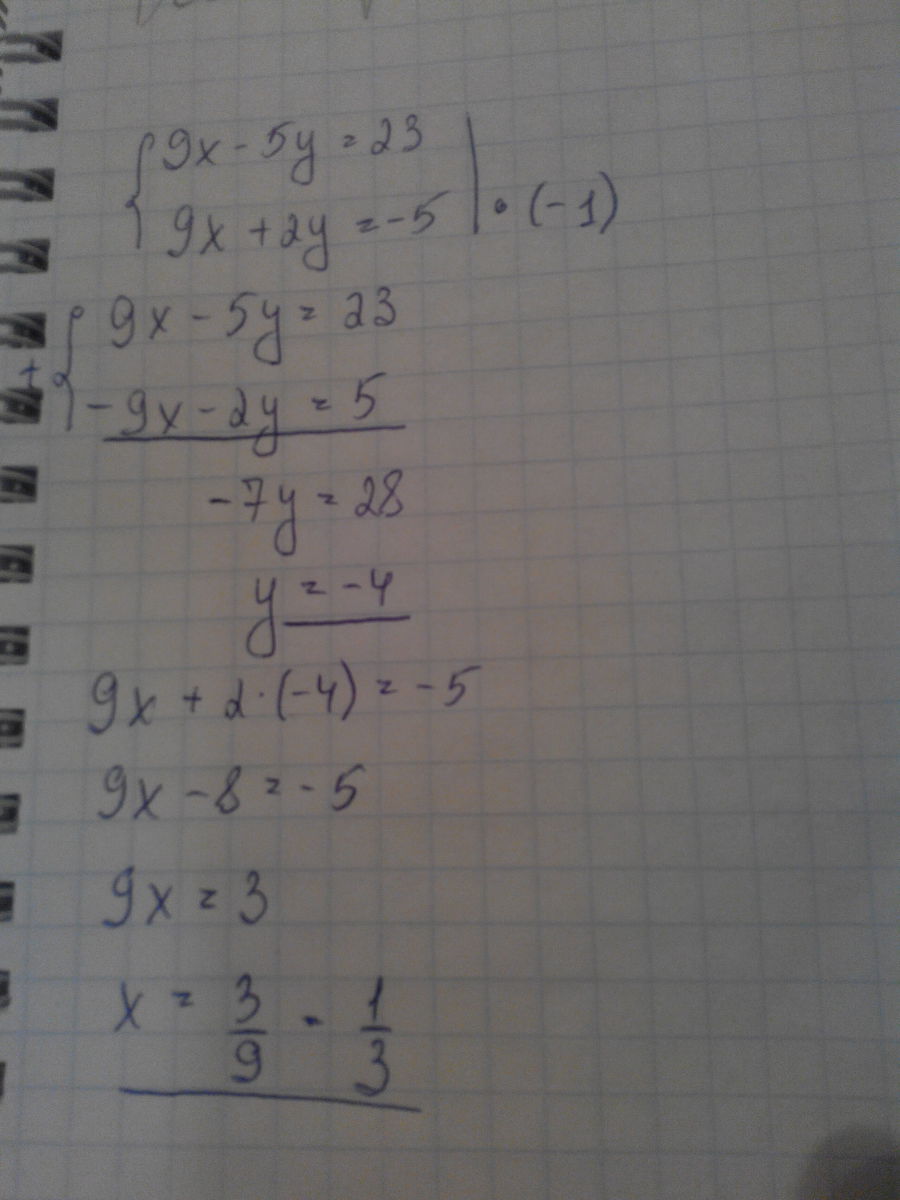 9x - 5y = 23
9x + 2y = -5 | · (-1)
9x - 5y = 23
+
-9x - 2y = 5
-7y = 28
y = -4
9x + 2·(-4) = -5
9x - 8 = -5
9x = 3
x = 3/9 = 1/3